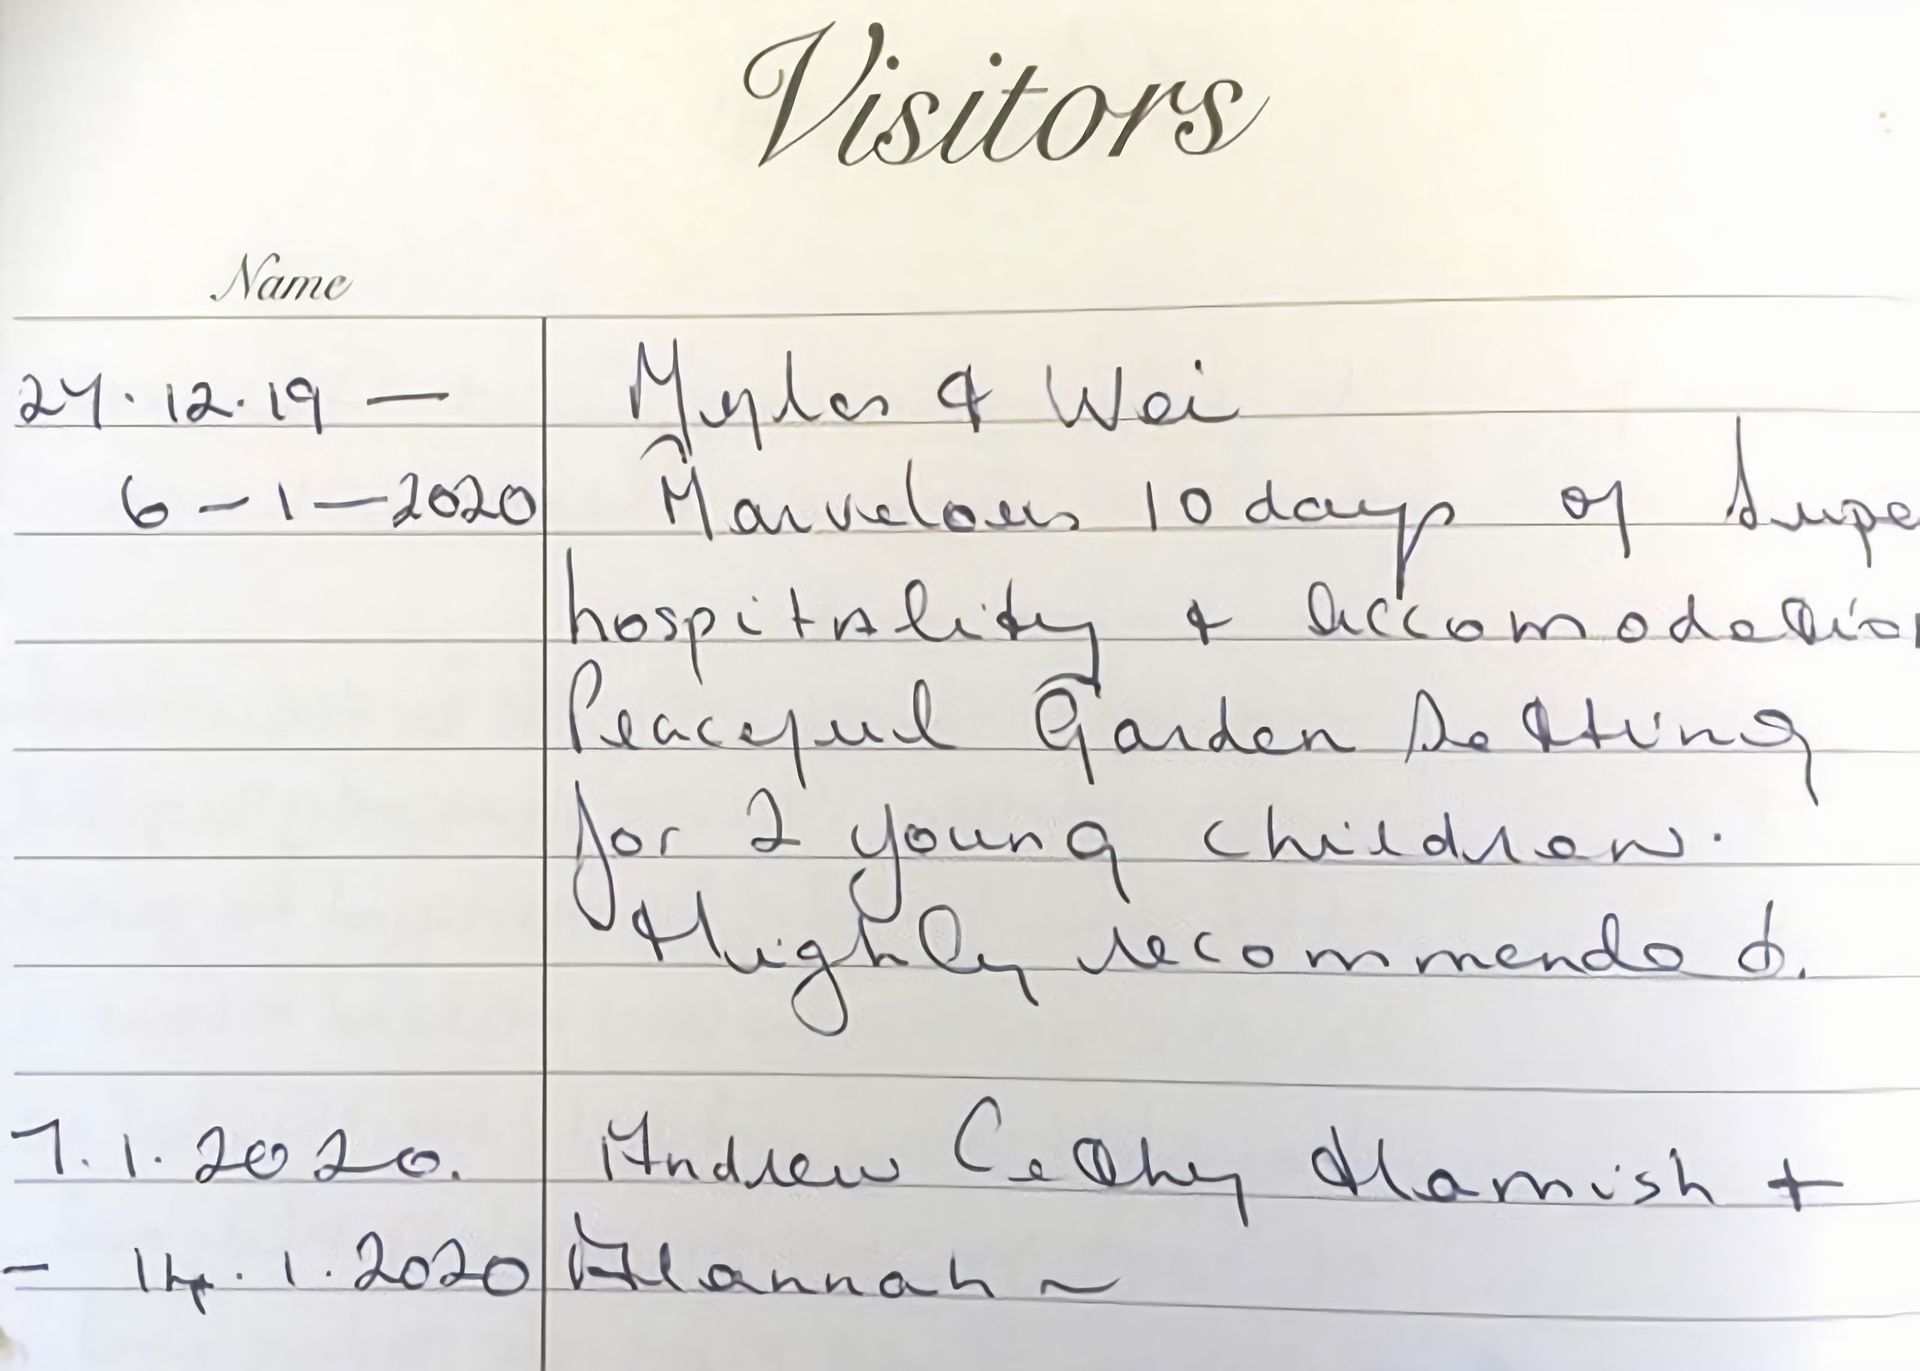 Visitors
Name
27.12.19 — Myles & Wei
6-1-2020 Marvelous 10 days of Supe
hospitality & accomodation
Peaceful Garden Setting
for 2 young children.
Highly recommended.
7.1.2020. Andrew Cathy Hamish +
- 14.1.2020 Hannah ~